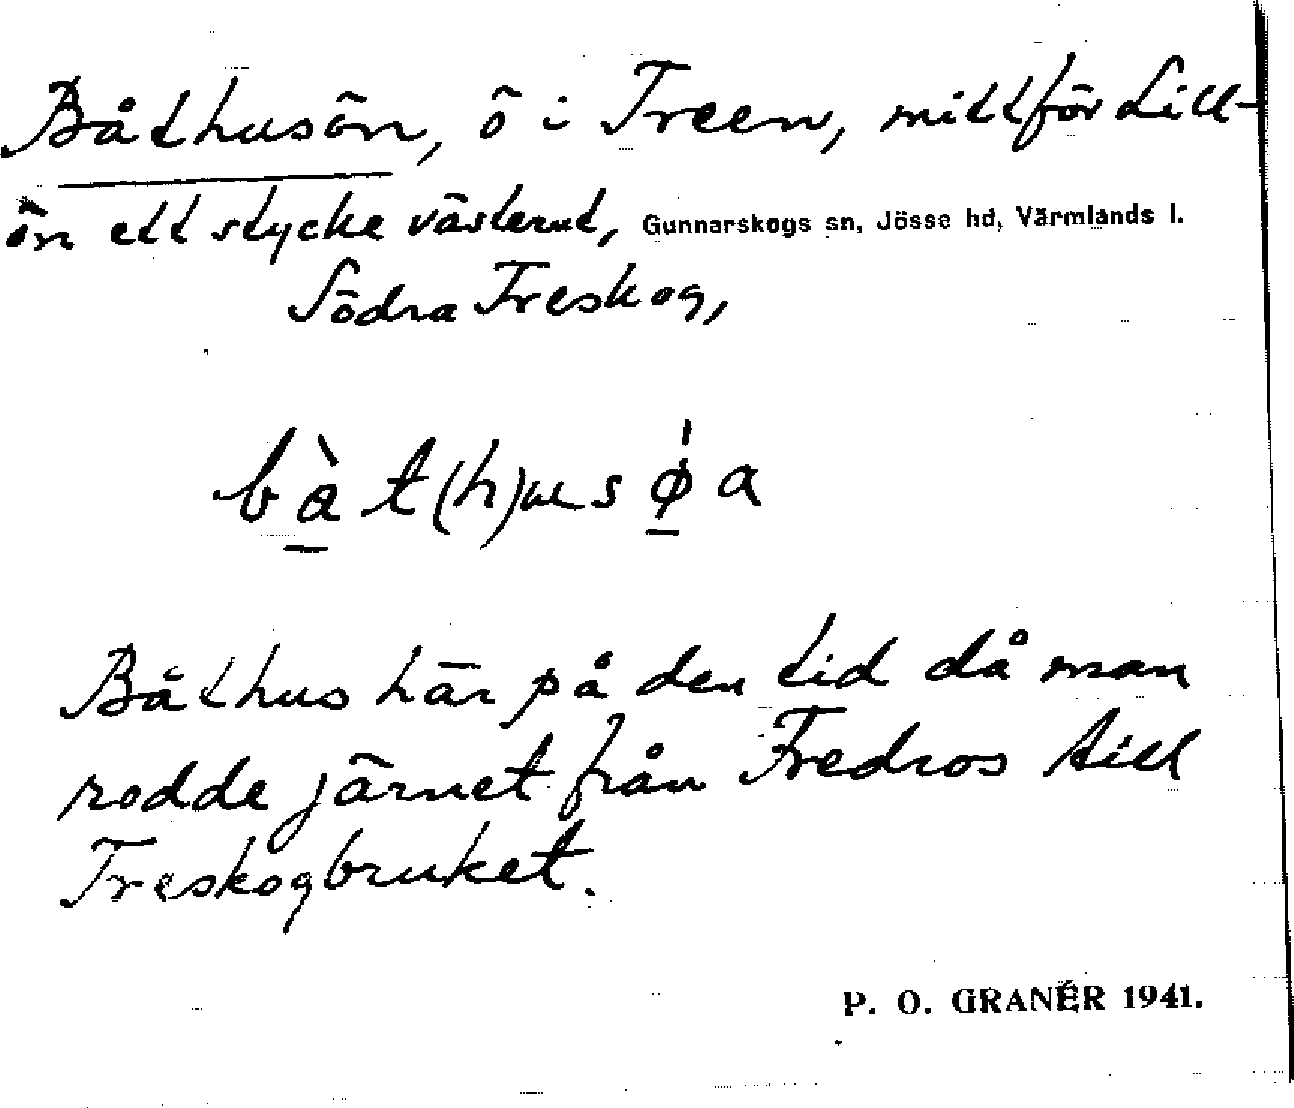 Båthusön, ö i Treen, mittför Lill-
ön ett stycke västerut, Gunnarskogs sn, Jösse hd, Värmlands l.
Södra Treskog,
bàt(h)usǿa
Båthus här på den tid då man
rodde järnet från Fredros till
Treskogbruket.
P. O. GRANÉR 1941.